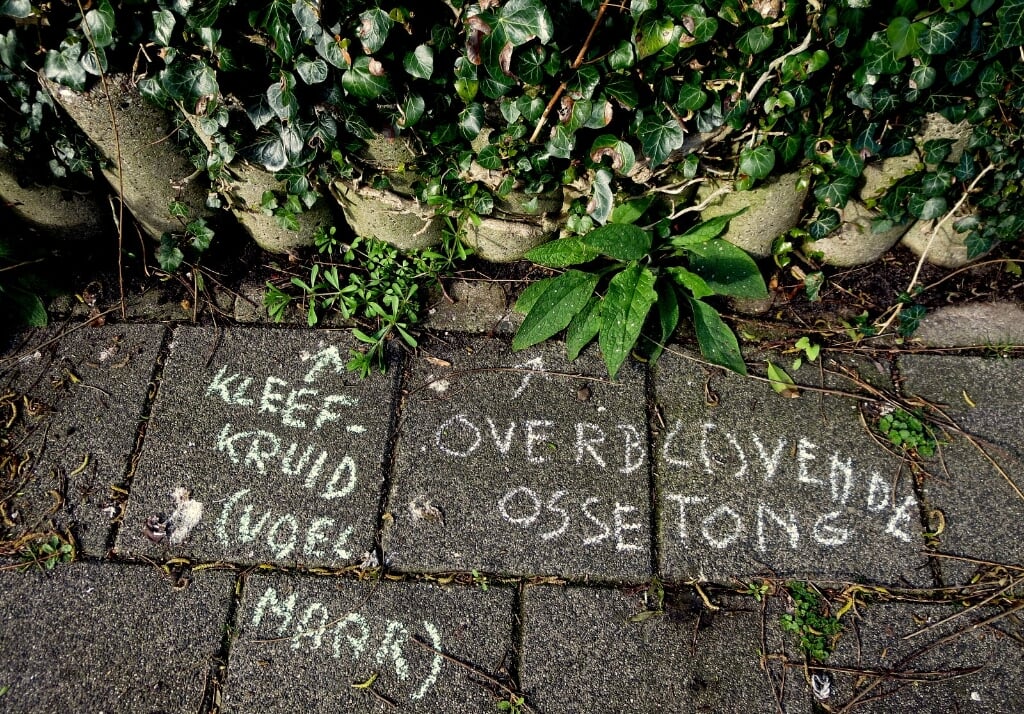 ↑
KLEEF-
KRUID
(VOGEL
MARR)
↑
OVERBL(I)VENDE
OSSETONG